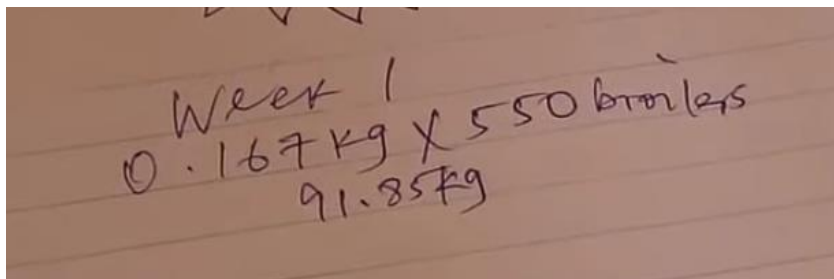 Week 1
0.167kg X 550 broilers
91.85kg